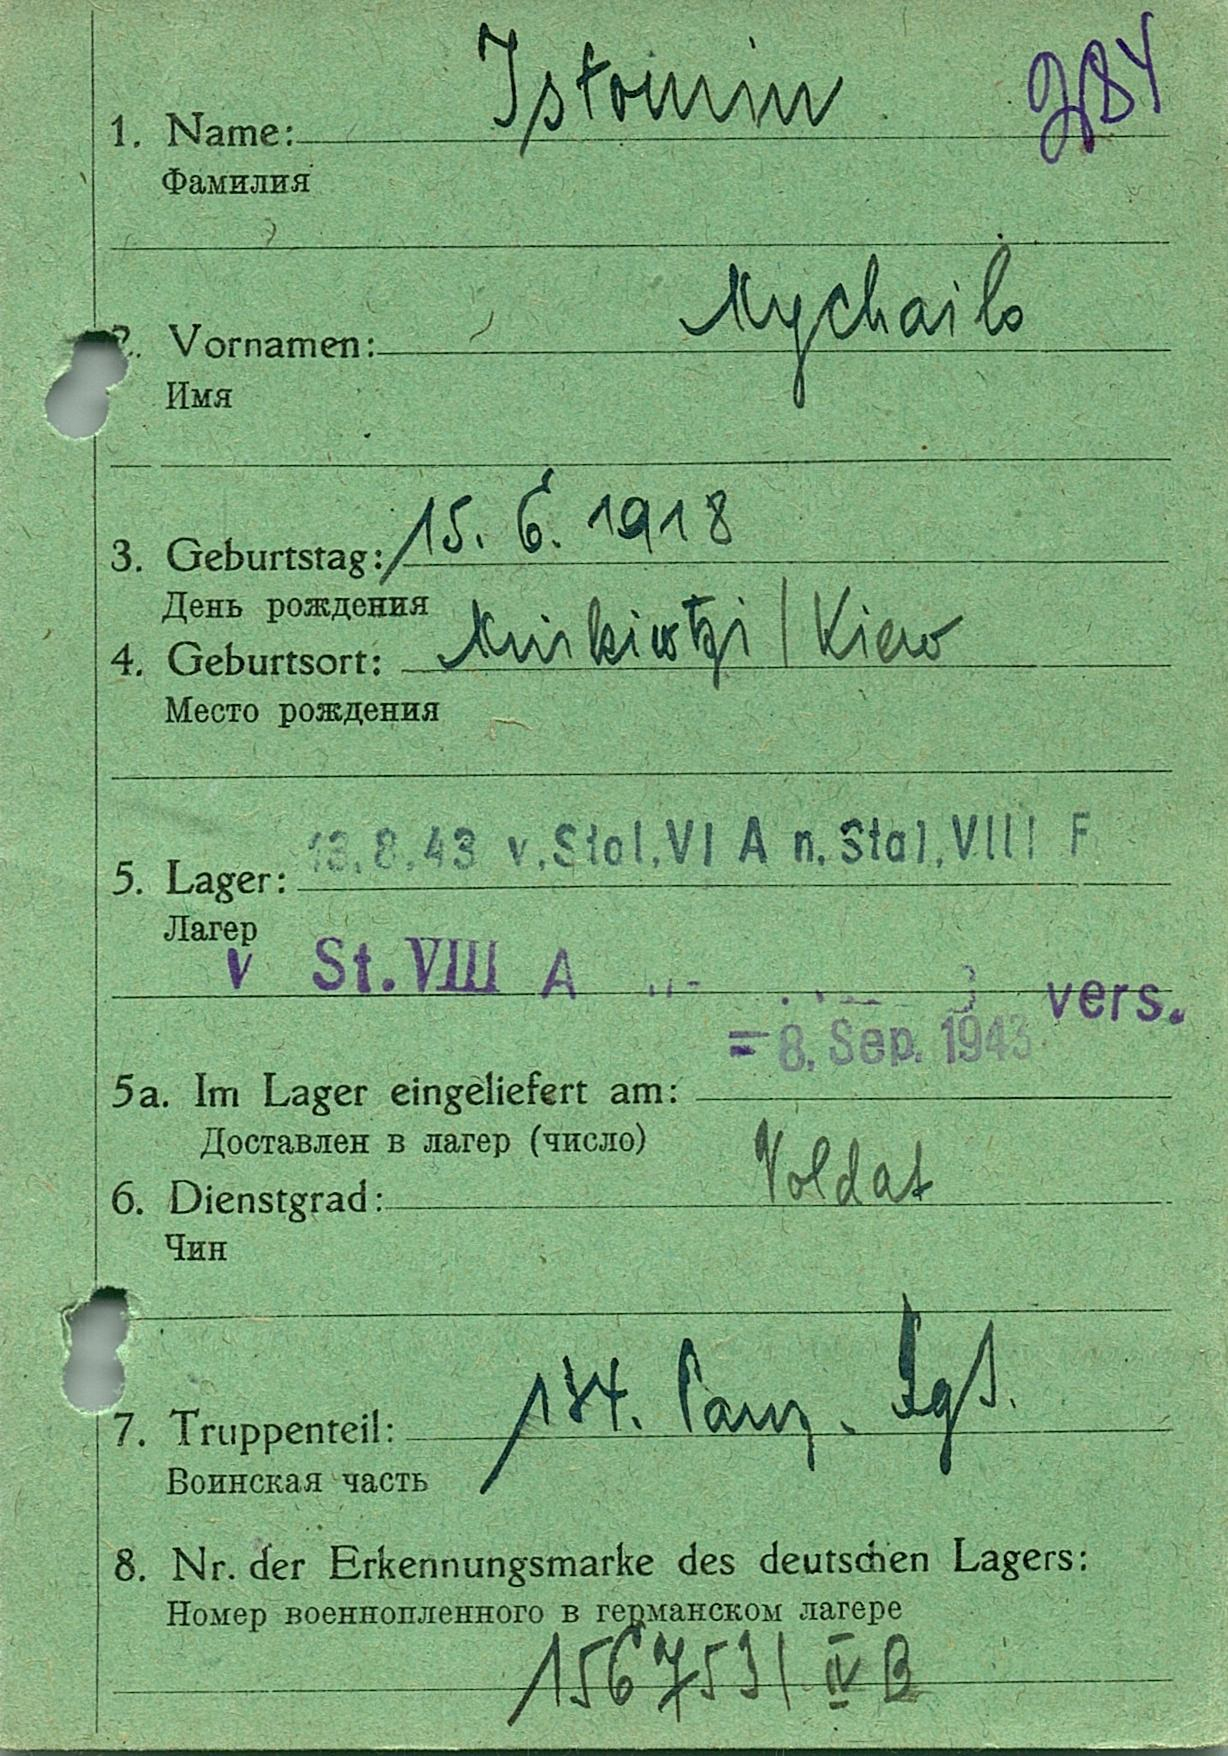 Istomin
1. Name:
Фамилия
Mychailo
2. Vornamen:
Имя
15. 6. 1918
3. Geburtstag:
День рождения
4. Geburtsort: / Kiew
Место рождения
13.8.43 v. Stal. VI A n. Stal. VIII F
5. Lager:
Лагер
v St. VIII A vers.
= 8. Sep. 1943
5a. Im Lager eingeliefert am:
Доставлен в лагер (число)
6. Dienstgrad: Soldat
Чин
7. Truppenteil: 134. Panz.
Воинская часть
8. Nr. der Erkennungsmarke des deutschen Lagers:
Номер военнопленного в германском лагере
156753 / IV B